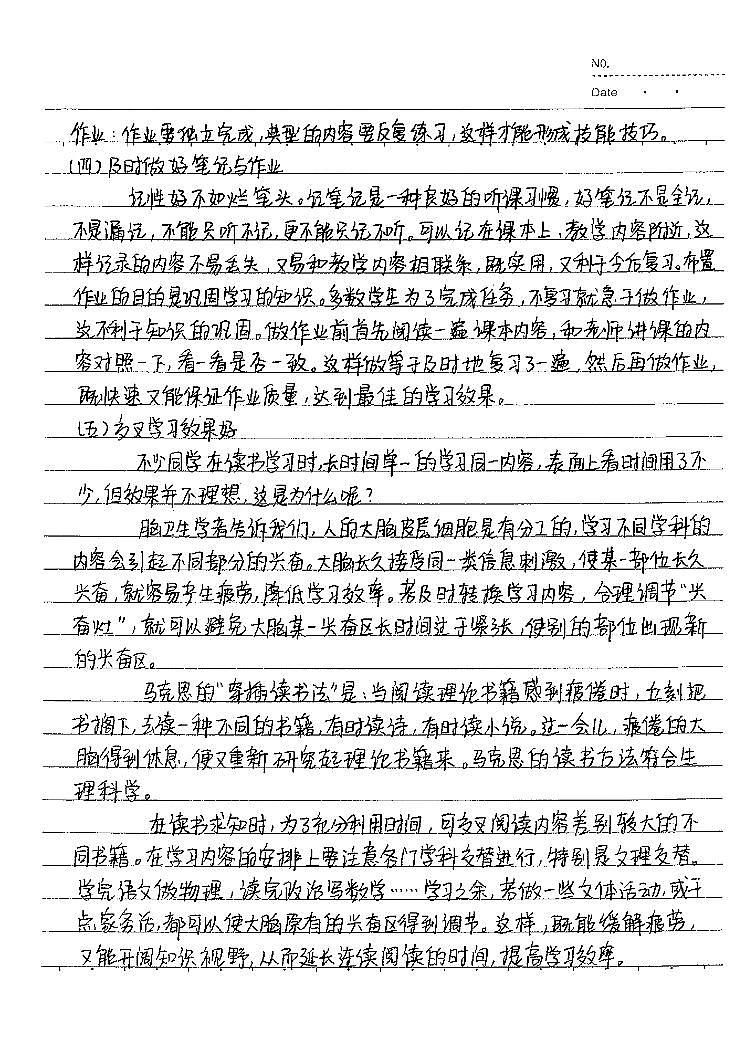 NO.
Date
作业:作业要独立完成,典型的内容要反复练习,这样才能形成技能技巧。
(四)及时做好笔记与作业
记性好不如烂笔头。记笔记是一种良好的听课习惯,好笔记不是全记,
不是漏记,不能只听不记,更不能只记不听。可以记在课本上、教学内容附近,这
样记录的内容不易丢失,又易和教学内容相联系,既实用,又利于今后复习。布置
作业的目的是巩固学习的知识。多数学生为了完成任务,不复习就急于做作业,
这不利于知识的巩固。做作业前首先阅读一遍课本内容,和老师讲课的内
容对照一下,看一看是否一致。这样做等于及时地复习了一遍,然后再做作业,
既快速又能保证作业质量,达到最佳的学习效果。
(五)交叉学习效果好
不少同学在读书学习时,长时间单一的学习同一内容,表面上看时间用了不
少,但效果并不理想,这是为什么呢?
脑卫生学者告诉我们,人的大脑皮层细胞是有分工的,学习不同学科的
内容会引起不同部分的兴奋。大脑长久接受同一类信息刺激,使某一部位长久
兴奋,就容易产生疲劳,降低学习效率。若及时转换学习内容,合理调节“兴
奋灶”,就可以避免大脑某一兴奋区长时间过于紧张,使别的部位出现新
的兴奋区。
马克思的“穿插读书法”是:当阅读理论书籍感到疲倦时,立刻把
书搁下,去读一种不同的书籍,有时读诗,有时读小说。过一会儿,疲倦的大
脑得到休息,便又重新研究起理论书籍来。马克思的读书方法符合生
理科学。
在读书求知时,为了充分利用时间,可交叉阅读内容差别较大的不
同书籍。在学习内容的安排上要注意各门学科交替进行,特别是文理交替。
学完语文做物理,读完政治写数学……学习之余,若做一些文体活动,或干
点家务活,都可以使大脑原有的兴奋区得到调节。这样,既能缓解疲劳,
又能开阔知识视野,从而延长连续阅读的时间,提高学习效率。